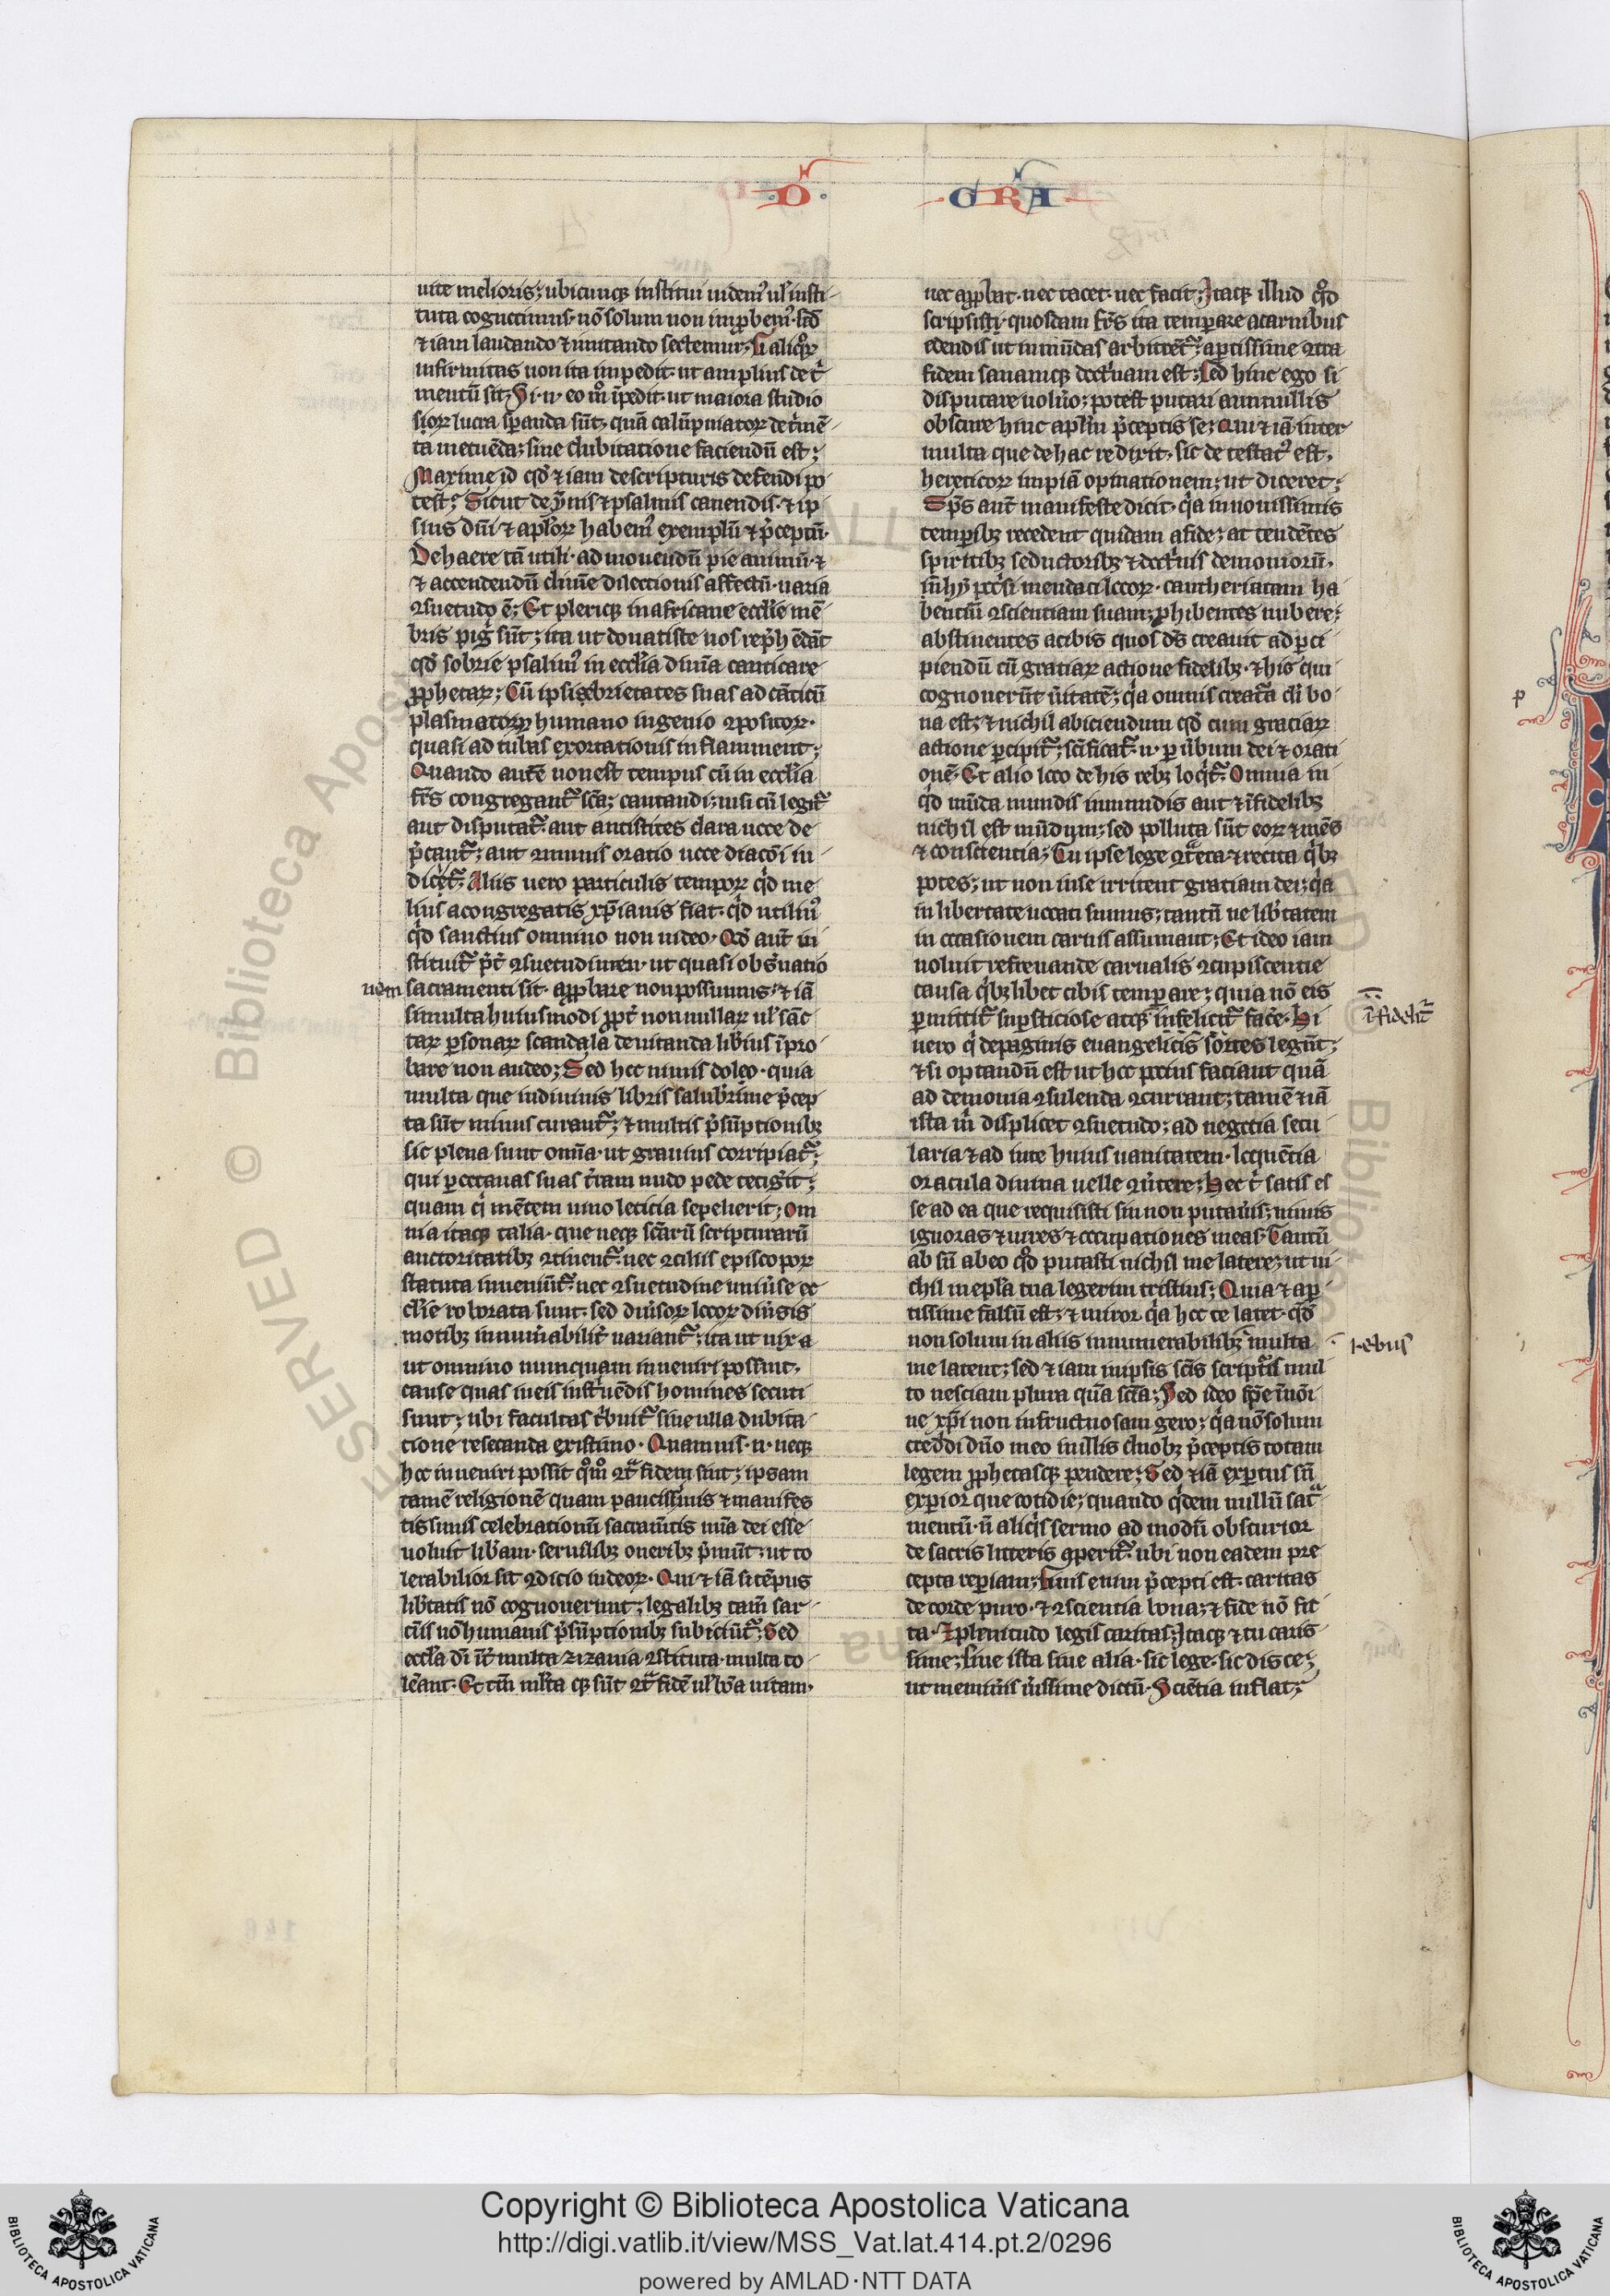 ·D·
·GRA·
uite melioris; ubicunqꝫ institui uidemꝰ ul' insti-
tuta cognoscimus· nō solum non improbemꝰ· sed
& iam laudando & imitando sectemur; Si aliqͦꝝ
infirmitas non ita impedit· ut amplius det̾
mentū sit; Si· n· eo mͦ īpedit· ut maiora studio
sioꝝ lucra speranda sūt· quā calūpniatoꝝ det̾mē-
ta metuēda; sine dubitatione faciendū est;
Maxime id qđ & iam de scripturis defendi po
test; Sicut de ymnis & psalmis canendis· & ip
sius dn̄i & apl'oꝝ habemꝰ exemplū & p̄ceptū·
De hac re tā utili· ad mouendū pie animū· &
& accendendū diuine dilectionis affectū· uaria
ꝯsuetudo ē; Et pleriqꝫ in africane eccl'ie mē-
bris pig̾ sūt; ita ut donatiste nos rep̾hēdāt
qđ sobrie psalimꝰ in eccl'ia diuina cantica
ꝓphetaꝝ; Cū ipsi ebrietates suas ad cāticū
psalmatoꝝ humano ingenio ꝯpositoꝝ·
quasi ad tubas exortationis inflamment;
Quando autē non est tempus cū in eccl'ia
fr̄s congregant̾ sc̄a; cantandi; nisi cū legit̾
aut disputat̾· aut antistites clara uoce de
p̄cant̾; aut cōmunis oratio uoce diaconi in
dicet̾; Aliis uero particulis tempoꝝ qͥd me
lius a congregatis xp̄ianis fiat· qͥd utiliꝰ
qͥd sanctius omnino non uideo· Qđ aut̄ in
stituit̾ p̄t̾ ꝯsuetudinem· ut quasi obs̾uatio
sacramenti sit· approbare non possumus· & iā
si multa huiusmodi ꝓpt̾ nonnullaꝝ ul' sāc
taꝝ personaꝝ scandala deuitanda lib̾ius īpro-
bare non audeo; Sed hoc nimis doleo· quia
multa que in diuinis libris salub̾rime p̄cep
ta sūt minus curant̾; & multis p̄sūptionibꝫ
sic plena sunt om̄ia· ut grauius corripiat̾;
qui per octauas suas t̾ram nudo pede tetig̾it;
quam qͥ mētem uino leticia sepelierit; Om
nia itaqꝫ talia· que neqꝫ sc̄arū scripturarū
auctoritatibꝫ ꝯtinent̾· nec ꝯciliis episcopoꝝ
statuta inueniūt̾· nec ꝯsuetudine uniu̾se ec
cl'ie roborata sunt· sed diu̾soꝝ locoꝝ diu̾sis
motibꝫ innum̾abilit̾ uariant̾; ita ut uix a
ut omnino numquam inueniri possint·
cause quas in eis inst̾uēdis homines secuti
sunt; ubi facultas t̾buit̾ sine ulla dubita
tione resecanda existimo· Quamuis· n· neqꝫ
hoc inueniri possit qͦmͦ ꝯt̾ fidem sint; ipsam
tamē religionē quam paucissimis & manifes
tissimis celebrationū sacram̄tis mīa dei esse
uoluit lib̾am· seruilibꝫ oneribꝫ p̄mūt; ut to
lerabilior sit ꝯdicio iudeoꝝ· Qui & iā si tēpus
lib̾tatis nō cognouerunt; legalibꝫ tam̄ sar-
cīis nō humanis p̄sūptionibꝫ subiciūt̾; Sed
eccl'a dī īt̾ multa zizania ꝯstituta· multa to-
lerant· Et tam̄ multa qꝫ sūt ꝯt̾ fidē ul' bōa uitam·
nec approbat· nec tacet· nec facit; Itaqꝫ illud qđ
scripsisti· quosdam fr̄s ita temperare a carnibus
edendis ut inmūdas arbitrent̾; apertissime ꝯtra
fidem sanamqꝫ doct̾nam est; Sed hinc ego si
disputare uolu̾o; potest putari a nonnullis
obscure hinc apl'm p̄cepisse; Qui & iā inter
multa que de hac re dixit· sic detestatꝰ est·
hereticoꝝ impiā opinationem; ut diceret;
Sp̄s aut̄ manifeste dicit· qͥa in nouissimis
temporibꝫ recedent quidam a fide; attendētes
spiritibꝫ seductoribꝫ & doct̾nis demoniorū·
in hypoc̾si mendaciloqoꝝ· cautheriatam ha
bentiū ꝯscientiam suam; ꝓhibentes nubere;
abstinentes a cibis quos dſ creauit ad perci
piendū cū gratiaꝝ actione fidelibꝫ· & his qui
cognouerūt u̾itatē; qͥa omnis creat̾a dī bo
na est; & nichil abiciendum qđ cum gratiaꝝ
actione percipit̾; sc̄ificat̾· n· per u̾bum dei & orati
onē· Et alio loco de his rebꝫ loqͥt̾· Omnia in
qͥd mūda mundis inmundis aut & īfidelibꝫ
nichil est mūdum; sed polluta sūt eoꝝ & mēs
& conscientia; Tu ipse lege ꝯt̾ & recita qͥbꝫ
potes; ut non in se irritent gratiam dei; qͥa
in libertate uocati sumus; tantū ne lib̾tatem
in occasionem carnis assumant; Et ideo iam
noluit refrenande carnalis ꝯcupiscentie
causa qͥbꝫlibet cibis temperare; quia nō eis
permittit̾ superstitiose atqꝫ infelicit̾ fac̾e· Hi
uero qͥ de paginis euangelicis sortes legūt;
& si optandū est ut hoc pocius faciant quā
ad demonia ꝯsulenda ꝯcurrant; tamē & iā
ista m̄ displicet ꝯsuetudo; ad negotia secu
laria & ad uite huius uanitatem· loquētia
oracula diuina uelle ꝯu̾tere; Hec t̾ satis es
se ad ea que requisisti si non putau̾is; nimis
ignoras & uires & occupationes meas· Tantū
absū ab eo qđ putasti nichil me latere; ut ni-
chil in epl'a tua legerim tristius; Quia & ap̄-
tissime falsū est; & miror qͥa hoc te latet· qđ
non solum in aliis innumerabilibꝫ multa
me latent; sed & iam in ipsis sc̄is scripturis mul
to nesciam plura quā scīa; Sed ideo spe in noī
ne xp̄i non infructuosam gero; qͥa nō solum
credidi dn̄o meo in illis duobꝫ p̄ceptis totam
legem prophetasqꝫ pendere; Sed & iā expertus sū
experiorque cotidie; quando qͥdem nullū sac̾-
mentū· ū aliqͥs sermo admodū obscurior
de sacris litteris aperit̾· ubi non eadem pre
cepta reperiam; Finis enim p̄cepti est· caritas
de corde puro· & ꝯscientia bona; & fide nō fic
ta· & plenitudo legis caritas; Itaqꝫ & tu caris
sime; siue ista siue alia· sic lege· sic disce;
ut memin̾is u̾issime dictū· Scientia inflat;
nem
īfidelit̾
rebus
p
Copyright © Biblioteca Apostolica Vaticana
http://digi.vatlib.it/view/MSS_Vat.lat.414.pt.2/0296
powered by AMLAD·NTT DATA
BIBLIOTECA APOSTOLICA VATICANA
BIBLIOTECA APOSTOLICA VATICANA